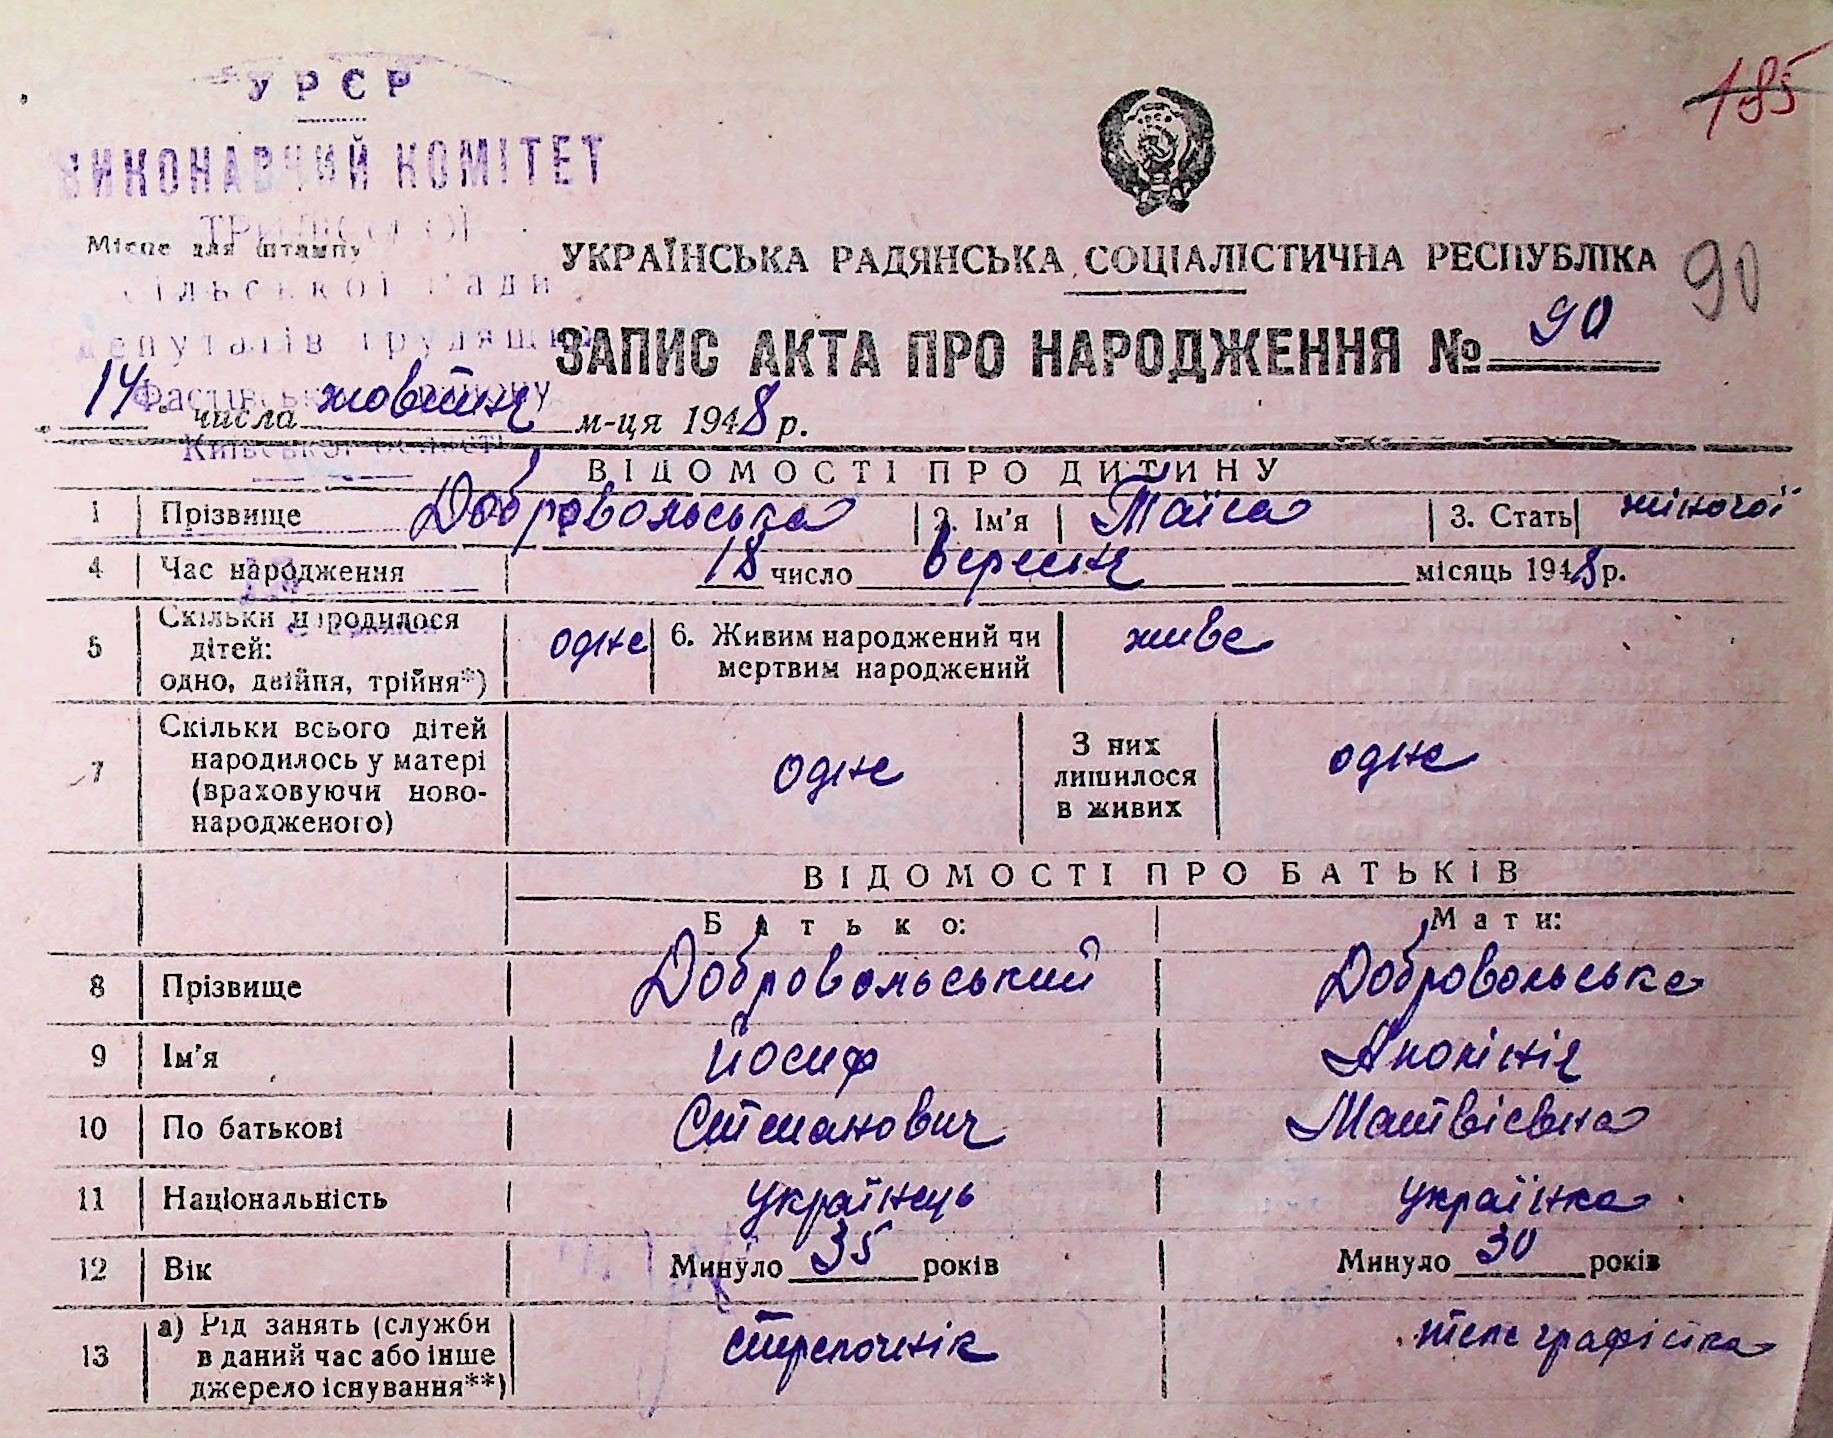 185
УРСР
ВИКОНАВЧИЙ КОМІТЕТ
Місце для штампу
сільської ради
депутатів трудящих
Київської області
УКРАЇНСЬКА РАДЯНСЬКА СОЦІАЛІСТИЧНА РЕСПУБЛІКА
90
ЗАПИС АКТА ПРО НАРОДЖЕННЯ № 90
14 числа жовтня м-ця 1948 р.
ВІДОМОСТІ ПРО ДИТИНУ
1 Прізвище Добровольська 2. Ім'я Таїса 3. Стать жіночої
4 Час народження 18 число вересня місяць 1948 р.
5 Скільки народилося дітей: одно, двійня, трійня*) одне 6. Живим народжений чи мертвим народжений живе
7 Скільки всього дітей народилось у матері (враховуючи ново-народженого) одне З них лишилося в живих одне
ВІДОМОСТІ ПРО БАТЬКІВ
Батько: Мати:
8 Прізвище Добровольський Добровольська
9 Ім'я Йосиф Аполінія
10 По батькові Степанович Матвієвна
11 Національність українець українка
12 Вік Минуло 35 років Минуло 30 років
13 а) Рід занять (служби в даний час або інше джерело існування**) стрелочнік телеграфістка